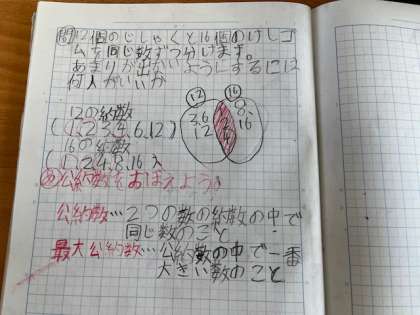 問 12個のじしゃくと16個のけしゴ
ムを同じ数ずつ分けます。
あまりが出ないようにするには
何人がいいか
12の約数
(1、2、3、4、6、12)
16の約数
(1、2、4、8、16)
12 16
3、6
12
1
2
4
8、
16
め 公約数をおぼえよう。
公約数…2つの数の約数の中で
同じ数のこと
最大公約数…公約数の中で一番
大きい数のこと